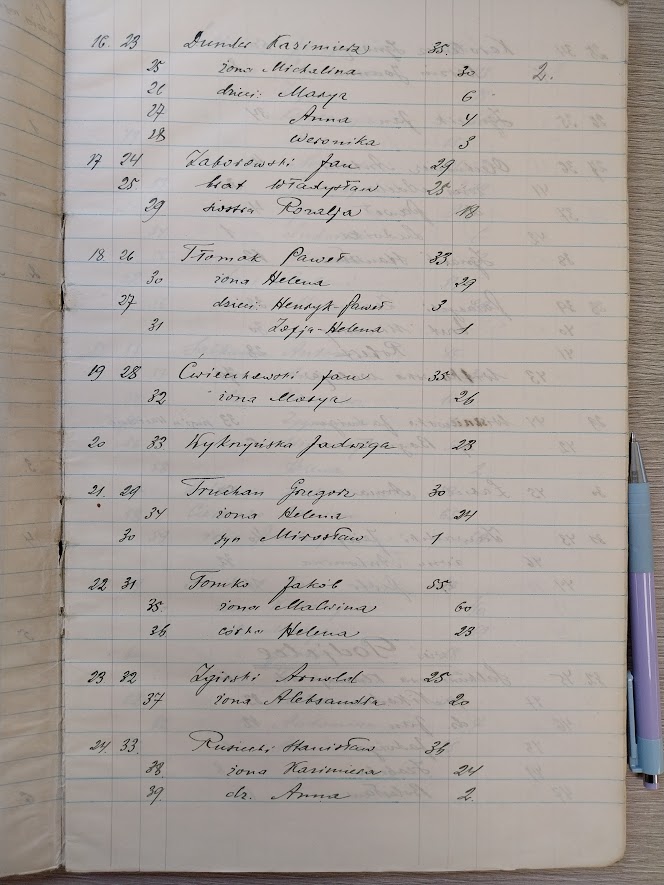 16. 23 Dunder Kazimierz 35.
25 żona Michalina 30 2.
26 dzieci: Marya 6
27 Anna 4
28 Weronika 3
17 24 Zaborowski Jan 29
25 brat Władysław 25
29 siostra Rozalja 18
18. 26 Tłomak Paweł 33.
30 żona Helena 29
27 dzieci: Henryk-Paweł 3
31 Zofja-Helena 1
19 28 Ćwiechowski Jan 35.
32 żona Marya 26
20 33 Wykrzyńska Jadwiga 23
21. 29 Truchan Grzegorz 30
34 żona Helena 24
30 syn Mirosław 1
22 31 Tomko Jakób 55.
35. żona Malwina 60
36 córka Helena 23
23 32 Arnold 25
37 żona Aleksandra 20
24. 33. Rusiecki Stanisław 36
38 żona Kazimiera 24
39. dz. Anna 2.